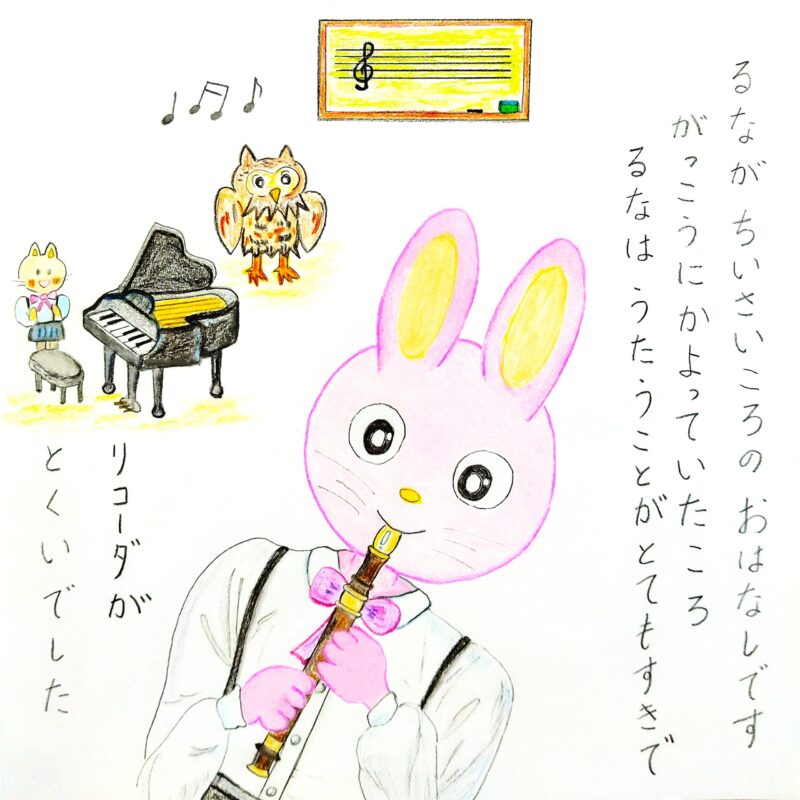 るなが ちいさいころの おはなしです
がっこうに かよっていたころ
るなは うたうことがとてもすきで
リコーダが
とくいでした